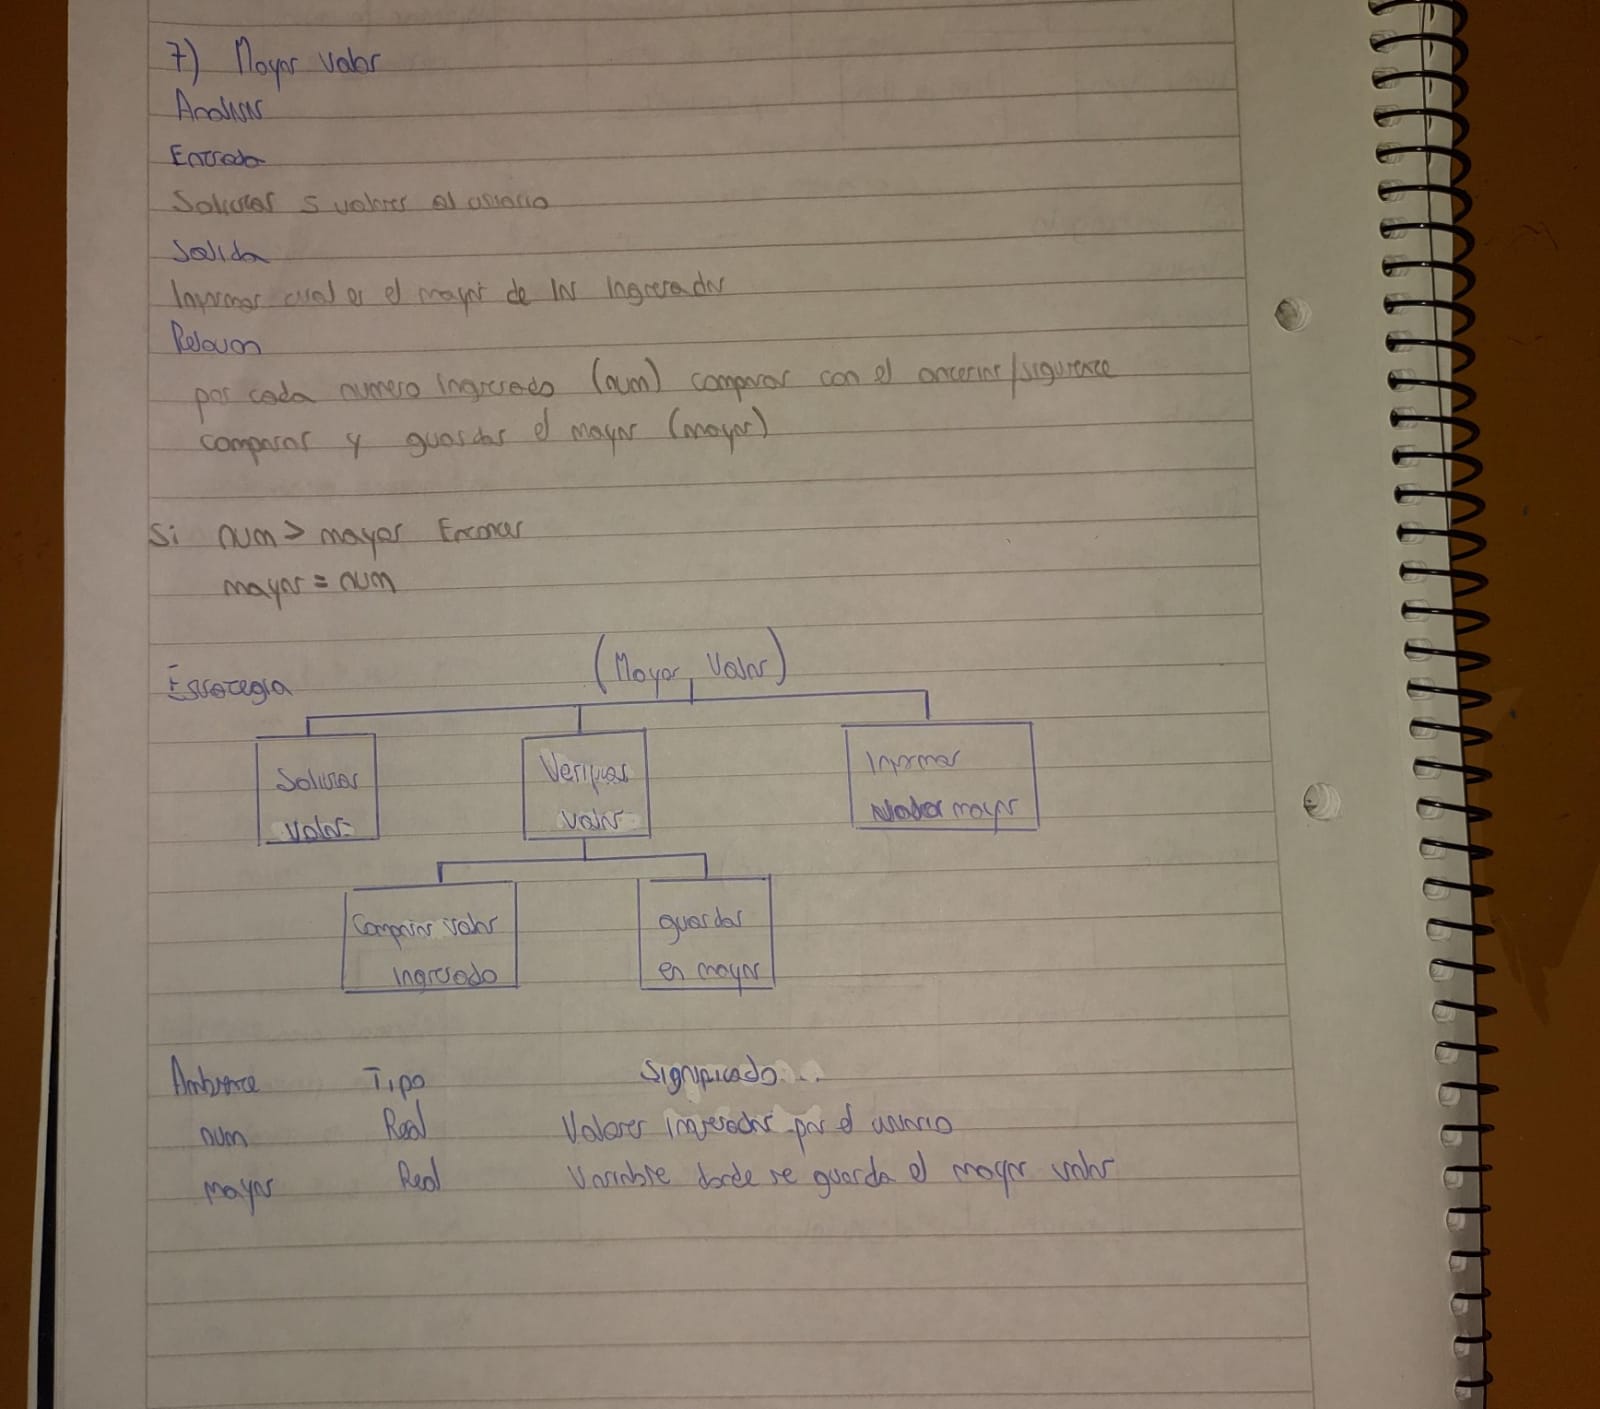 7) Mayor valor
Analisis
Entrada
Solicitar 5 valores al usuario
Salida
Informar cual es el mayor de los ingresados
Relacion
por cada numero ingresado (num) comparar con el anterior/siguiente
comparar y guardar el mayor (mayor)
Si num > mayor Entonces
mayor = num
Estrategia
(Mayor Valor)
Solicitar
valor
Verificar
valor
Informar
valor mayor
Comparar valor
ingresado
guardar
en mayor
Ambiente Tipo Significado
num Real Valores ingresados por el usuario
mayor Real Variable donde se guarda el mayor valor